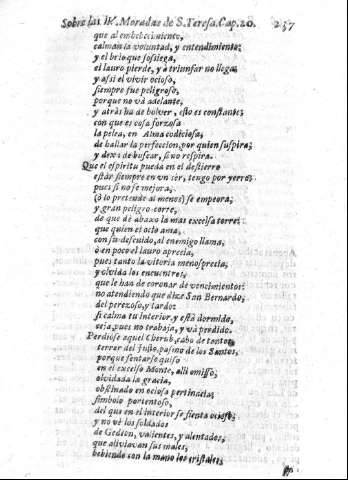 Sobre las IV. Moradas de S. Teresa. Cap. 20. 237
que al embebecimiento,
calman la voluntad, y entendimiento;
y el brio que sosiega,
el lauro pierde, y a triumfar no llega;
y assi el vivir ocioso,
siempre fue peligroso,
porque no và adelante,
y atràs ha de bolver, esto es constante;
con que es cosa forzosa
la pelea, en Alma codiciosa,
de hallar la perfeccion, por quien suspira;
y dexa de buscar, si no respira.
Que el espiritu pueda en el destierro
estàr siempre en un sèr, tengo por yerro;
pues si no se mejora,
(ò lo pretende al menos) se empeora,
y gran peligro corre,
de que dè abaxo la mas excelsa torre;
que quien el ocio ama,
con su descuido, al enemigo llama,
ò en poco el lauro aprecia,
pues tanto la vitoria menosprecia,
y olvida los encuentros,
que le han de coronar de vencimientos;
no atendiendo que dize San Bernardo,
del perezoso, y tardo:
si calma tu interior, y està dormido,
ceja, pues no trabaja, y và perdido.
Perdiose aquel Cherub, cabo de tontos,
terror del Justo, pasmo de los Santos,
porque sentarse quiso
en el excelso Monte, alli omisso,
olvidada la gracia,
obstinado en ociosa pertinacia;
simbolo portentoso,
del que en el interior se sienta ocioso;
y no vè los soldados
de Gedeon, valientes, y alentados,
que aliviavan sus males,
bebiendo con la mano los cristales,